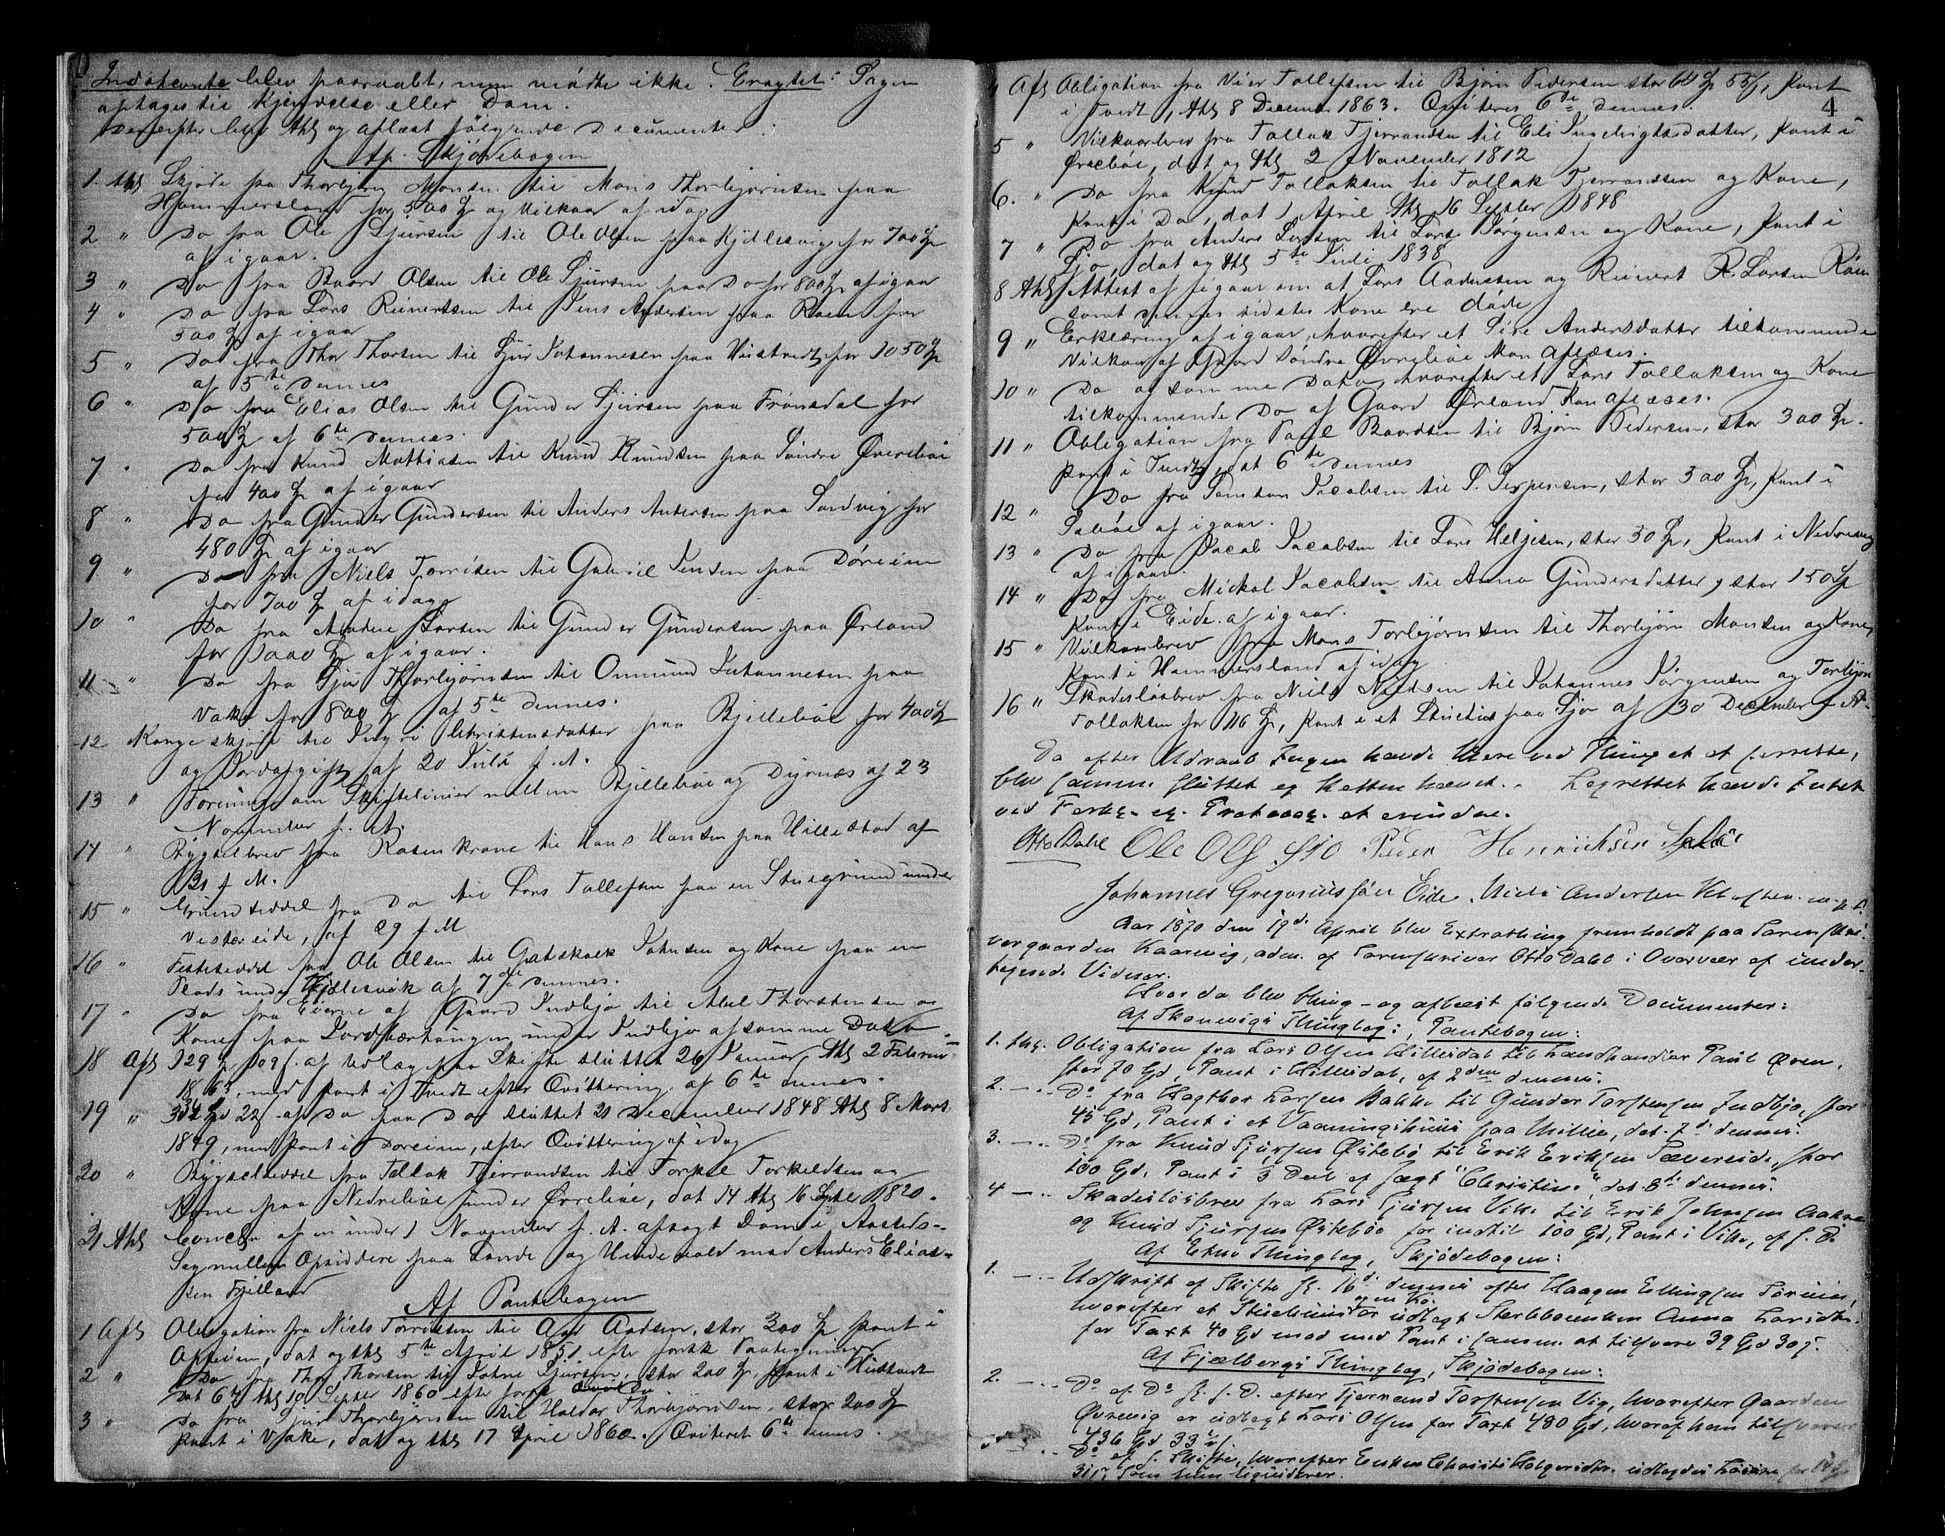 Indstevnte blev paaraabt, men mødte ikke. Eragtet: Sagen
optages til Kjendelse eller Dom.
Derefter blev thl og aflæst følgende Documenter:
Af Skjødebogen
1. thl Skjøde fra Thorbjørn Monsen til Mons Thorbjørnsen paa
Hammersland for 500 Spd og Vilkaar af idag
2 " Do fra Ole Sjursen til Ole Olsen paa Kjdlesvig for 700 Spd
af igaar.
3 " Do fra Baard Olsen til Ole Sjursen paa Do for 800 Spd af igaar
4 " Do fra Lars Reinertsen til Jens Andersen paa Raen for
500 Spd af igaar
5 " Do fra Thor Thorsen til Sjur Johannesen paa Hustvedt for 1050 Spd
af 5te dennes
6 " Do fra Elias Olsen til Gunder Sjursen paa Frønsdal for
500 Spd af 6te dennes.
7 " Do fra Knud Mathiasen til Knud Knudsen paa Søndre Øvrebøe
for 400 Spd af igaar
8 " Do fra Gunder Gundersen til Anders Andersen paa Sandvig for
480 Spd af igaar
9 " Do fra Niels Tørrisen til Gabriel Jensen paa Døreim
for 700 Spd af idag
10 " Do fra Anders Larsen til Gunder Gundersen paa Ørland
for 1000 Spd af igaar.
11 " Do fra Sjur Thorbjørnsen til Ommund Johannesen paa
Vake for 800 Spd af 5te dennes.
12 Kongeskjøde til Ingri Christensdatter paa Bjellebøe for 400 Spd
og Jordafgift af 20 Juli f. A.
13 " Forening om Skiftelinier mellem Bjellebøe og Dyrnæs af 23
November f. A.
14 " Bygselbrev fra Rosenkrone til Hans Hansen paa Hillestad af
31 f. M.
15 " Grundseddel fra Do til Lars Tollefsen paa en Stuegrund under
Vestereide, af 29 f. M
16 " Festeseddel fra Ole Olsen til Gatskalk Johnsen og Kone paa en
Plads under Kjdlesvik af 7de dennes.
17 " Do fra Eierne af Gaard Indbjo til Abel Thorstensen og
Kone paa under Indbjo af samme Dato
18 Afl 129 Spd 109 s. af Udlæg paa Skifte sluttet 26 Januar, thl 2 Februar
1863, med Pant i Tvedt efter Qvittering af 6te dennes.
19 " 22 af Do paa Do sluttet 21 December 1848 thl 8 Mars
1849, med Pant i Doreim, efter Qvittering af idag
20 " Bygselseddel fra Tollak Tjerrandsen til Torkel Torkeldsen og
Kone paa Nedrebøe under Øvrebøe, dat 14 thl 16 Septbr 1820.
21 thl af en under 1 November f. A. afsagt Dom i Aasteds-
Sag mellem Opsiddere paa Lande og Anders Elias-
sen Fjelland
Af Pantebogen
1 Afl Obligation fra Niels Tørrissen til Aad Aadsen, stor 300 Spd Pant i
dat og thl 5te April 1851 efter forsk
2 " Do fra Thor Thorsen til Johne Sjursen, stor 200 Spd, Pant i Hustvedt
dat 6te thl 10 Septbr 1860 efter forsk
3 " Do fra Sjur Thorbjørnsen til Haldor Thorbjørnsen, stor 200 Spd
Pant i Vake, dat og thl 17 April 1860. Qviteret 6te dennes.
4
4 Afl Obligation fra Vier Tollefsen til Bjørn Pedersen stor 64 Spd 55 s, Pant
i Tvedt, thl 8 December 1863. Qviteret 6te dennes.
5 " Vilkaarbrev fra Tollak Tjerrandsen til Eli Ingebrigtsdatter, Pant i
Øvrebøe, dat og thl 2 November 1812
6. " Do fra Knud Tollaksen til Tollak Tjerrandsen og Kone,
Pant i Do, dat 1 April thl 16 Septbr 1848
7 " Do fra Anders Larsen til Lars Jørgensen og Kone, Pant i
Sjo, dat og thl 5te Juli 1838
8 thl Attest af igaar om at Lars Aadnesen og Reinert R. Larsen Raen
samt dennes sidstes Kone ere døde
9 " Erklæring af igaar, hvorefter et Siri Andersdatter tilkommende
Vilkaar af Gaard Søndre Øvrebøe kan aflæses.
10 " Do og samme Dato, hvorefter et Lars Tollaksen og Kone
tilkommende Do af Gaard Ørland kan aflæses.
11 " Obligation fra Paul Baardsen til Bjørn Pedersen, stor 300 Spd.
Pant i Tvedt, dat 6te dennes
12 " Do fra Samson Jacobsen til S. Jespersen, stor 300 Spd, Pant i
Sæbøe af igaar.
13 " Do fra Jacob Jacobsen til Lars Heljesen, stor 30 Spd, Pant i Nedrevaag
af igaar.
14 " Do fra Mickal Jacobsen til Anna Gundersdatter, stor 150 Spd
Pant i Eide af igaar.
15 " Vilkaarbrev fra Mons Torbjørnsen til Thorbjørn Monsen og Kone,
Pant i Hammersland af idag
16 " Skadesløsbrev fra Niels Nielsen til Johannes Jørgensen og Torbjørn
Tollaksen for 116 Spd, Pant i et Stuehus paa Sjo af 30 December f. A.
Da efter Udraab Ingen havde Mere ved Thinget at forrette,
blev samme sluttet og Retten hævet. Lagrettet havde Intet
ved Forhg. og Protocog. at erindre.
Otto Dahl Ole Ols Sjo Peder Henrichsen Sæbø
Johannes Gregoriussøn Eide. Niels Andersen m. p. P.
Aar 1870 den 19de April blev Extrathing fremholdt paa Sorenskri-
vergaarden Kaarvig, adm. af Sorenskriver Otto Dahl i Overvær af under-
tegnede Vidner.
Hvor da blev thing- og aflæst følgende Documenter:
Af Skonevigs Thinglag; Pantebogen:
1. thg. Obligation fra Lars Olsen Milleidal til Landhandler Paul Øren,
stor 70 Spd, Pant i Milleidal, af 2den dennes.
2. — " Do fra Hagthor Larsen Bakke til Gunder Torstensen Indbjo, stor
45 Spd, Pant i et Vaaningshuus paa Millie, dat. 7de dennes.
3. — " Do fra Knud Sjursen Østebø til Erik Eriksen Tævereide, stor
100 Spd, Pant i 3 Deel af Jægt "Christine", dat 8de dennes.
4 — " Skadesløsbrev fra Lars Sjursen Vike til Erik Johnsen Aakre
og Knud Sjursen Østebøe for indtil 100 Spd, Pant i Vike, af s. D.
Af Etne Thinglag, Skjødebogen:
1. — " Udskrift af Skifte sl. 16de dennes efter Haagen Ellingsen Sørheim,
hvorefter et Stuehuus og en Ko er udlagt Sterkboenken Anna Larsdtr.
for Taxt 40 Spd mod med Pant i samme at tilsvare 39 Spd 30 s.
Af Fjælbergs Thinglag, Skjødebogen:
2. — " Do af Do sl. s. D. efter Tjerrand Torstensen Vig, hvorefter Gaarden
Øvrevig er udlagt Lars Olsen for Taxt 480 Spd, hvoraf han tilsvarer
436 Spd 33 s.
3 — " Do af s. Skifte, hvorefter Enken Christi Holgersdtr. udlagdes Løsøre for
som hun liqviderer.